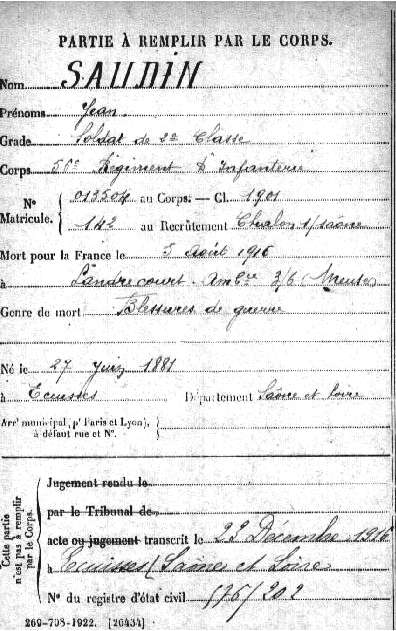 PARTIE À REMPLIR PAR LE CORPS.
Nom SAUDIN
Prénoms Jean
Grade Soldat de 2e Classe
Corps 56e Régiment d'Infanterie
N° Matricule. { 013504 au Corps. — Cl. 1901
142 au Recrutement Chalon s/Saône
Mort pour la France le 5 Août 1916
à Landrecourt. Amb.ce 3/6 (Meuse)
Genre de mort Blessures de guerre
Né le 27 Juin 1881
à Ecuisses Département Saône et Loire
Arrt municipal (pr Paris et Lyon),
à défaut rue et N°.
Cette partie n'est pas à remplir par le Corps.
Jugement rendu le
par le Tribunal de
acte ou jugement transcrit le 22 Décembre 1916
à Ecuisses (Saône et Loire
N° du registre d'état civil 176/202
269-708-1922. [26434]